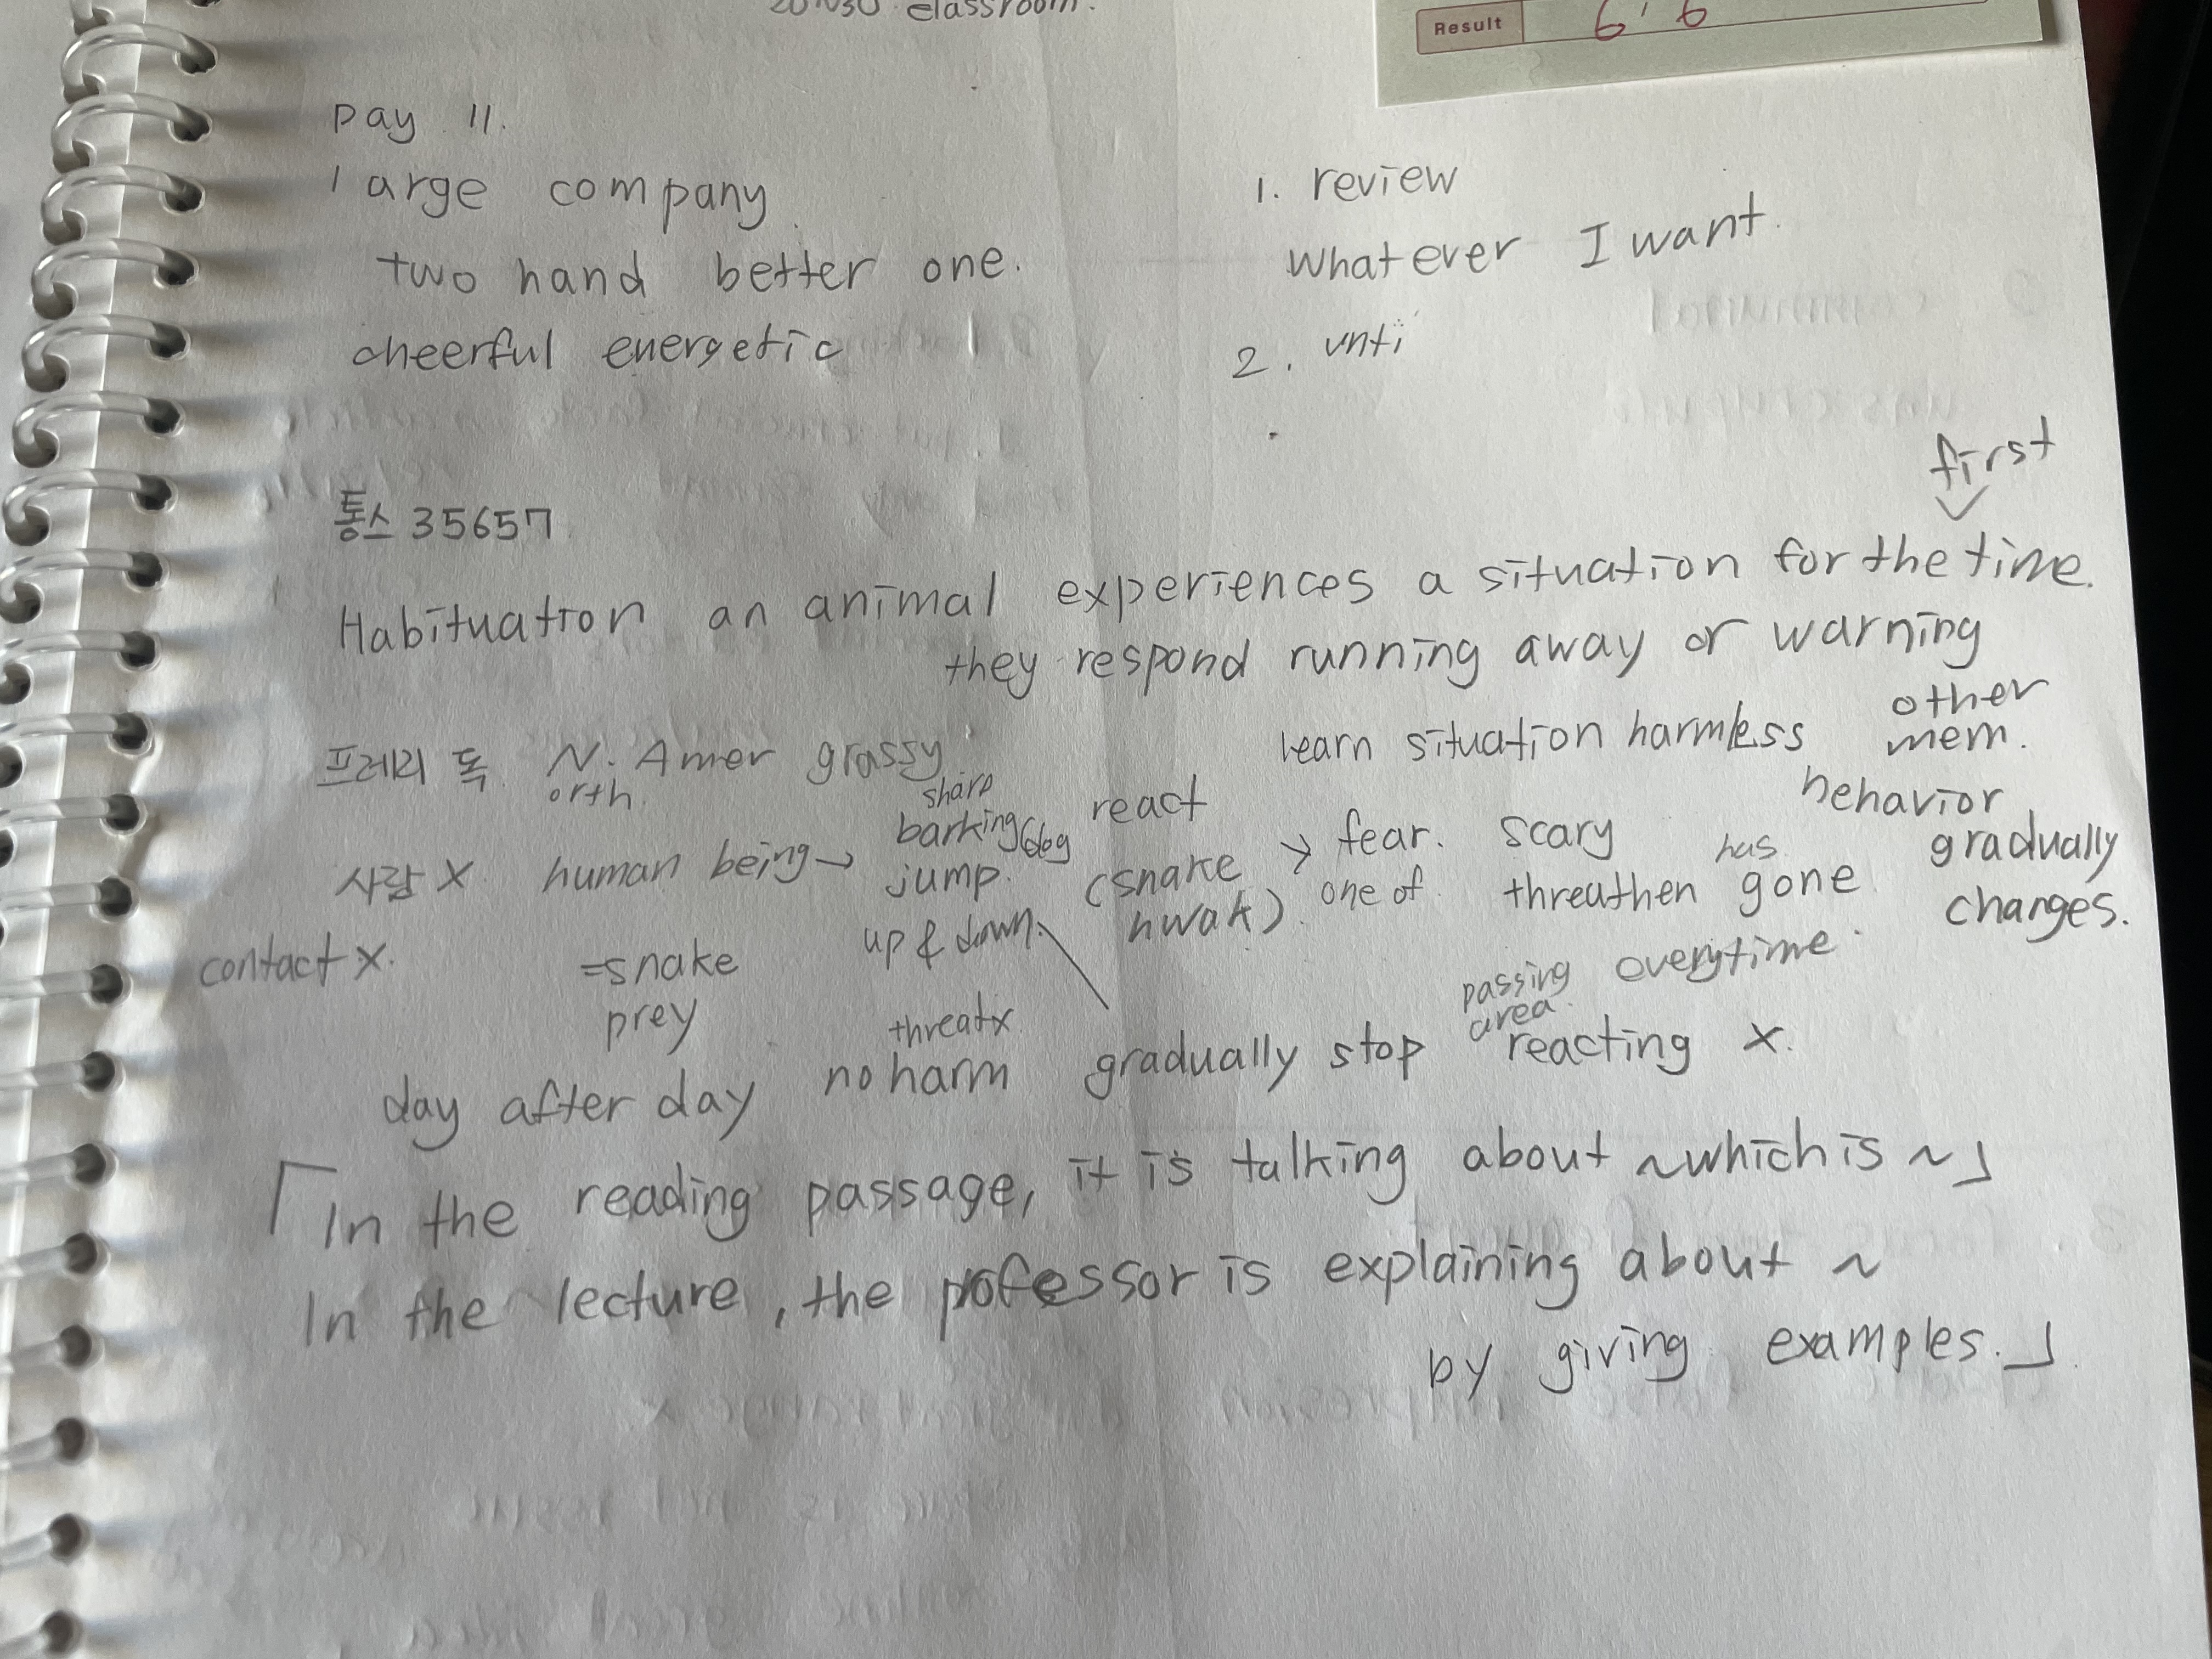 classroom.
Result
Day 11.
large company.
two hand better one.
cheerful energetic
1. review
whatever I want.
2. unti
통스 35657
first
Habituation an animal experiences a situation for the time.
they respond running away or warning
other
learn situation harmless mem.
프레리 독 N. Amer grassy
orth.
sharp
barking react
behavior
gradually
changes.
사람 X human being → jump. (snake > fear. scary has
up & down. hwak). one of threathen gone
contact X.
=snake
prey
passing everytime.
area.
threat x
day after day no harm gradually stop reacting x.
「In the reading passage, it is talking about ~which is ~」
In the lecture, the professor is explaining about ~
by giving examples.」